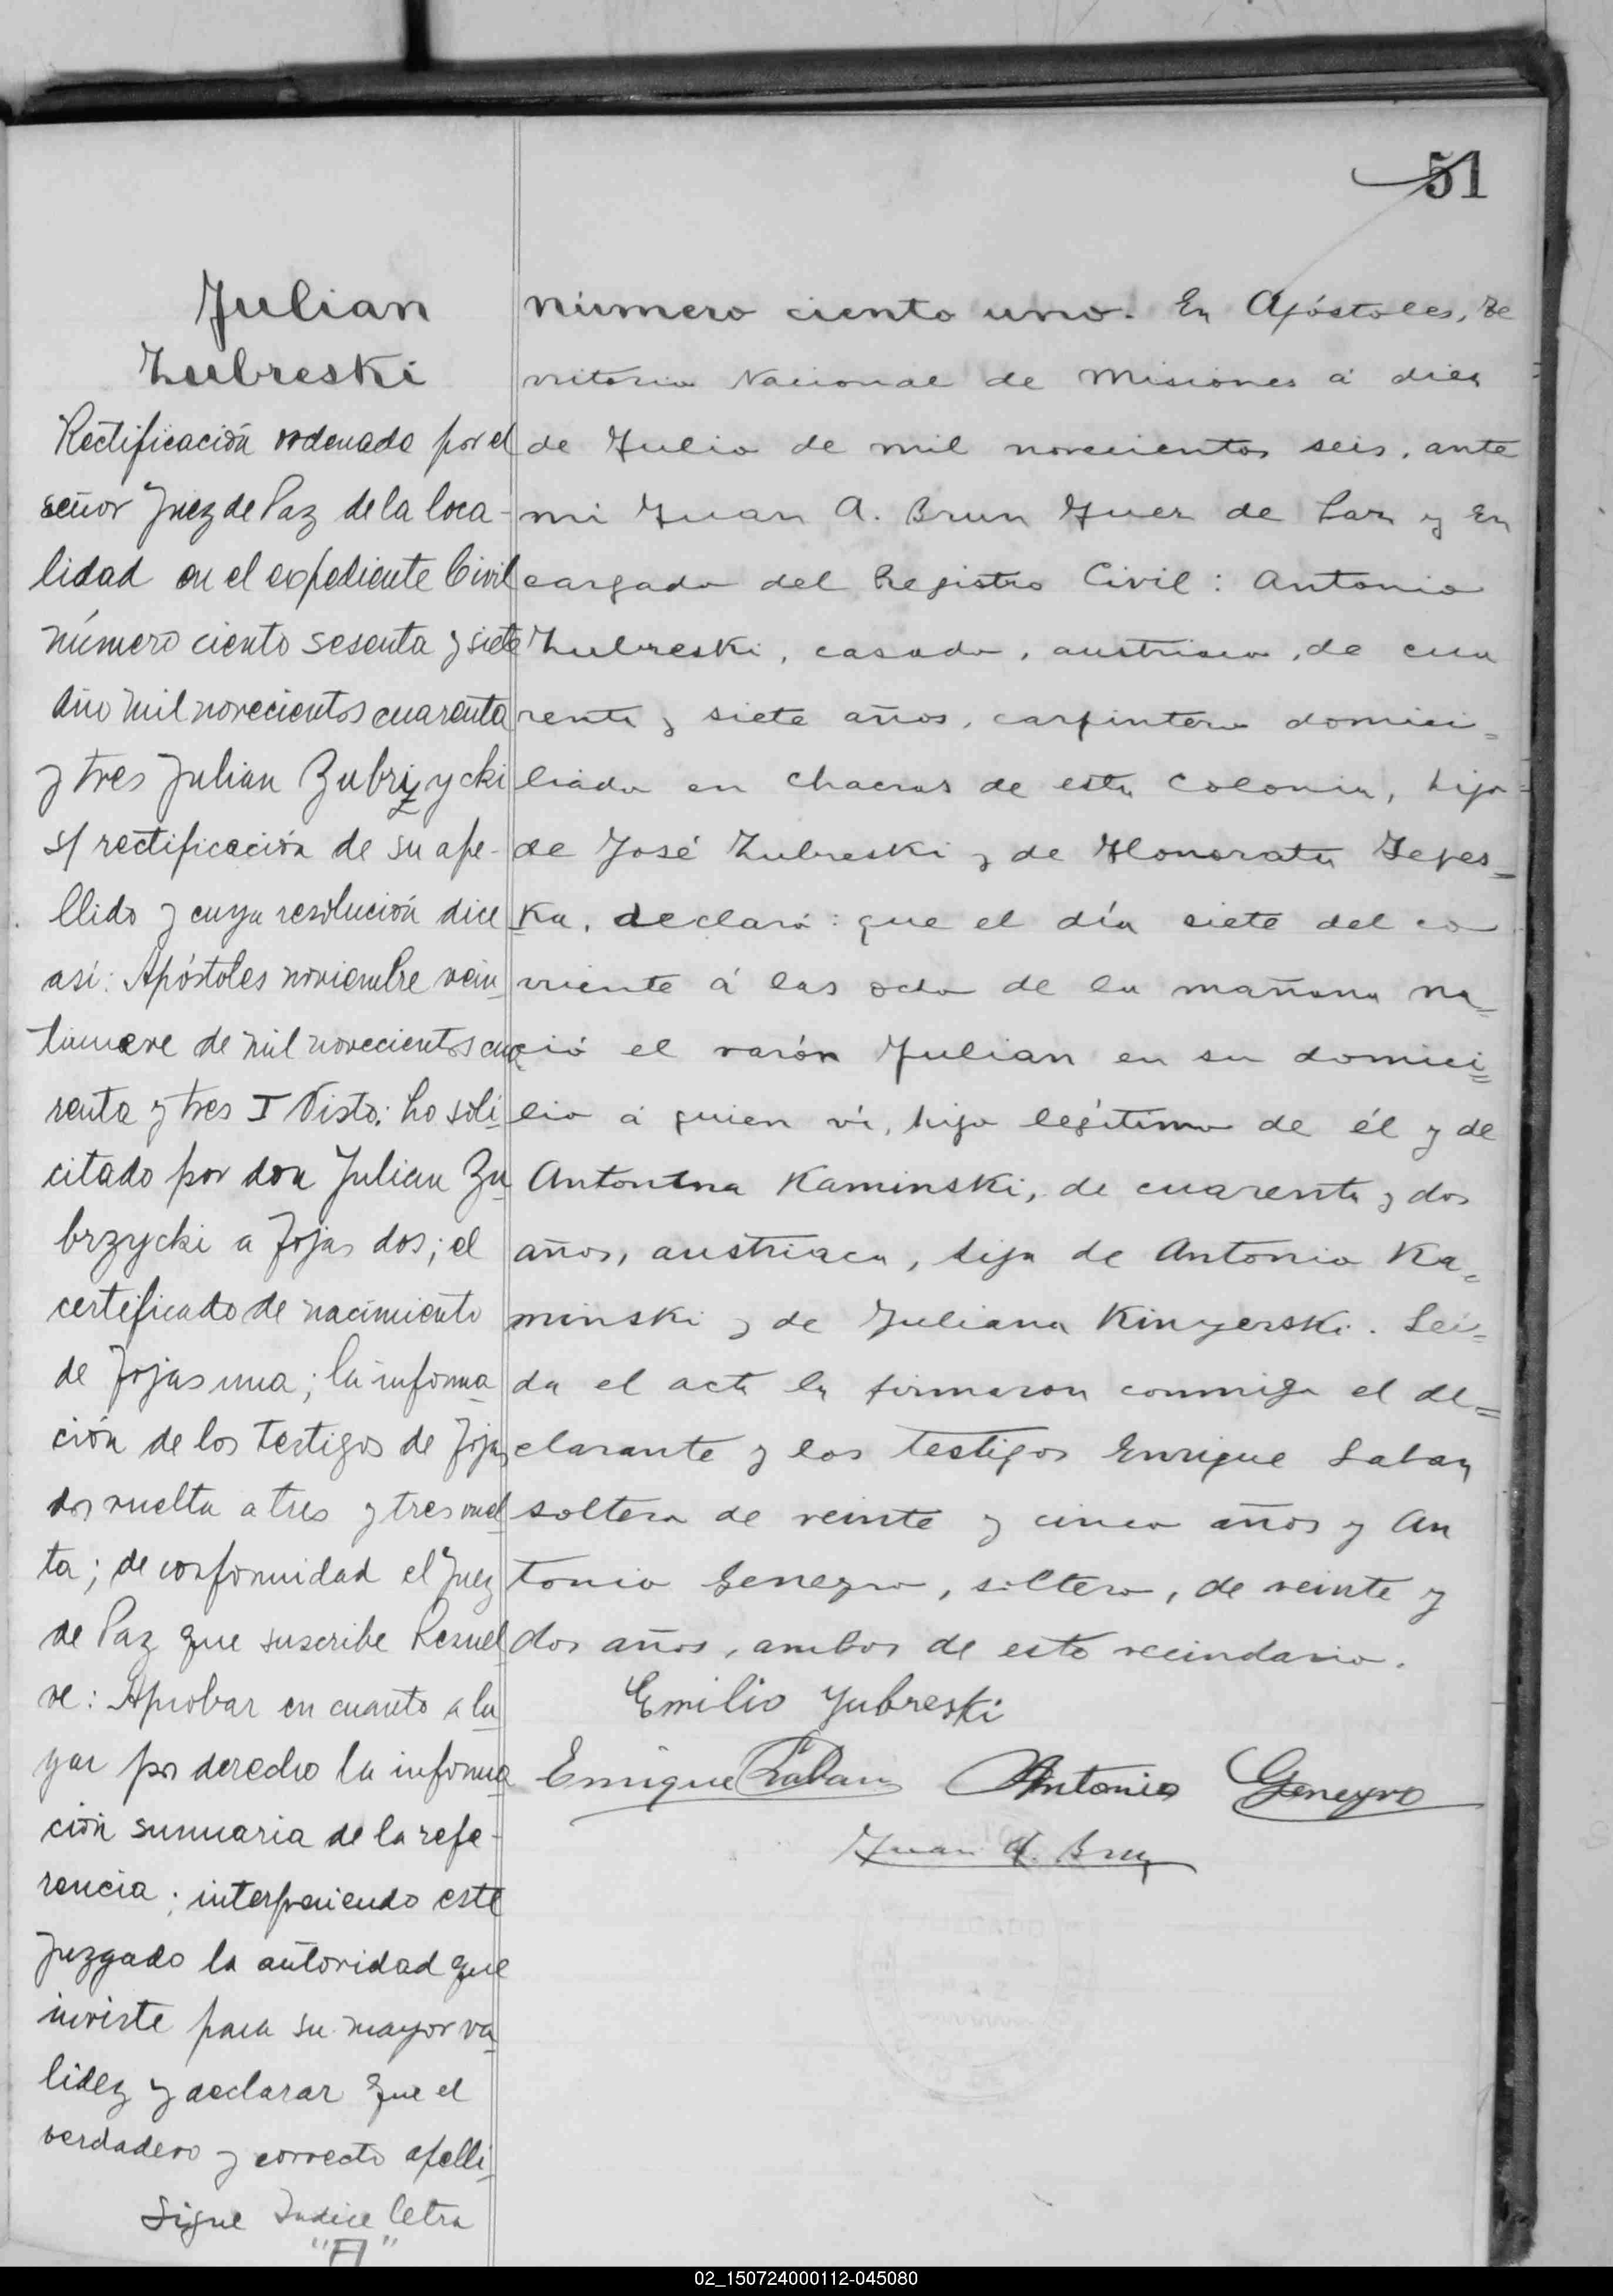 51
Julian
Zubreski
Rectificación ordenada por el
señor Juez de Paz de la loca-
lidad en el expediente Civil
número ciento sesenta y siete
año mil novecientos cuarenta
y tres Julian Zubrzycki
s/ rectificación de su ape-
llido y cuya resolución dice
así: Apóstoles noviembre vein
tinueve de mil novecientos cua
renta y tres I Visto: Lo soli
citado por don Julian Zu
brzycki a fojas dos; el
certificado de nacimiento
de fojas una; la informa
ción de los testigos de fojas
dos vuelta a tres y tres vuel
ta; de conformidad el Juez
de Paz que suscribe Resuel
ve: Aprobar en cuanto a lu
gar por derecho la informa
ción sumaria de la refe-
rencia; interponiendo este
Juzgado la autoridad que
inviste para su mayor va
lidez y declarar que el
verdadero y correcto apelli
Sigue Indice letra
"A"
Número ciento uno. En Apóstoles, Te
rritorio Nacional de Misiones á diez
de Julio de mil novecientos seis, ante
mi Juan A. Brun Juez de Paz y En
cargado del Registro Civil: Antonio
Zubreski, casado, austriaco, de cua
renta y siete años, carpintero domici=
liado en chacras de esta Colonia, hijo
de José Zubreski y de Honorata
ka, declaró: que el día siete del co
rriente á las ocho de la mañana na=
ció el varón Julian en su domici=
lio á quien ví, hijo legítimo de él y de
Antonina Kaminski, de cuarenta y dos
años, austriaca, hija de Antonio Ka=
minski y de Juliana Kinyerski. Leí=
da el acta la firmaron conmigo el de=
clarante y los testigos Enrique Laban
soltero de veinte y cinco años y An
tonio Geneyro, soltero, de veinte y
dos años, ambos de este vecindario.
Emilio Zubreski
Enrique Laban Antonio Geneyro
Juan A. Brun
02_150724000112-045080